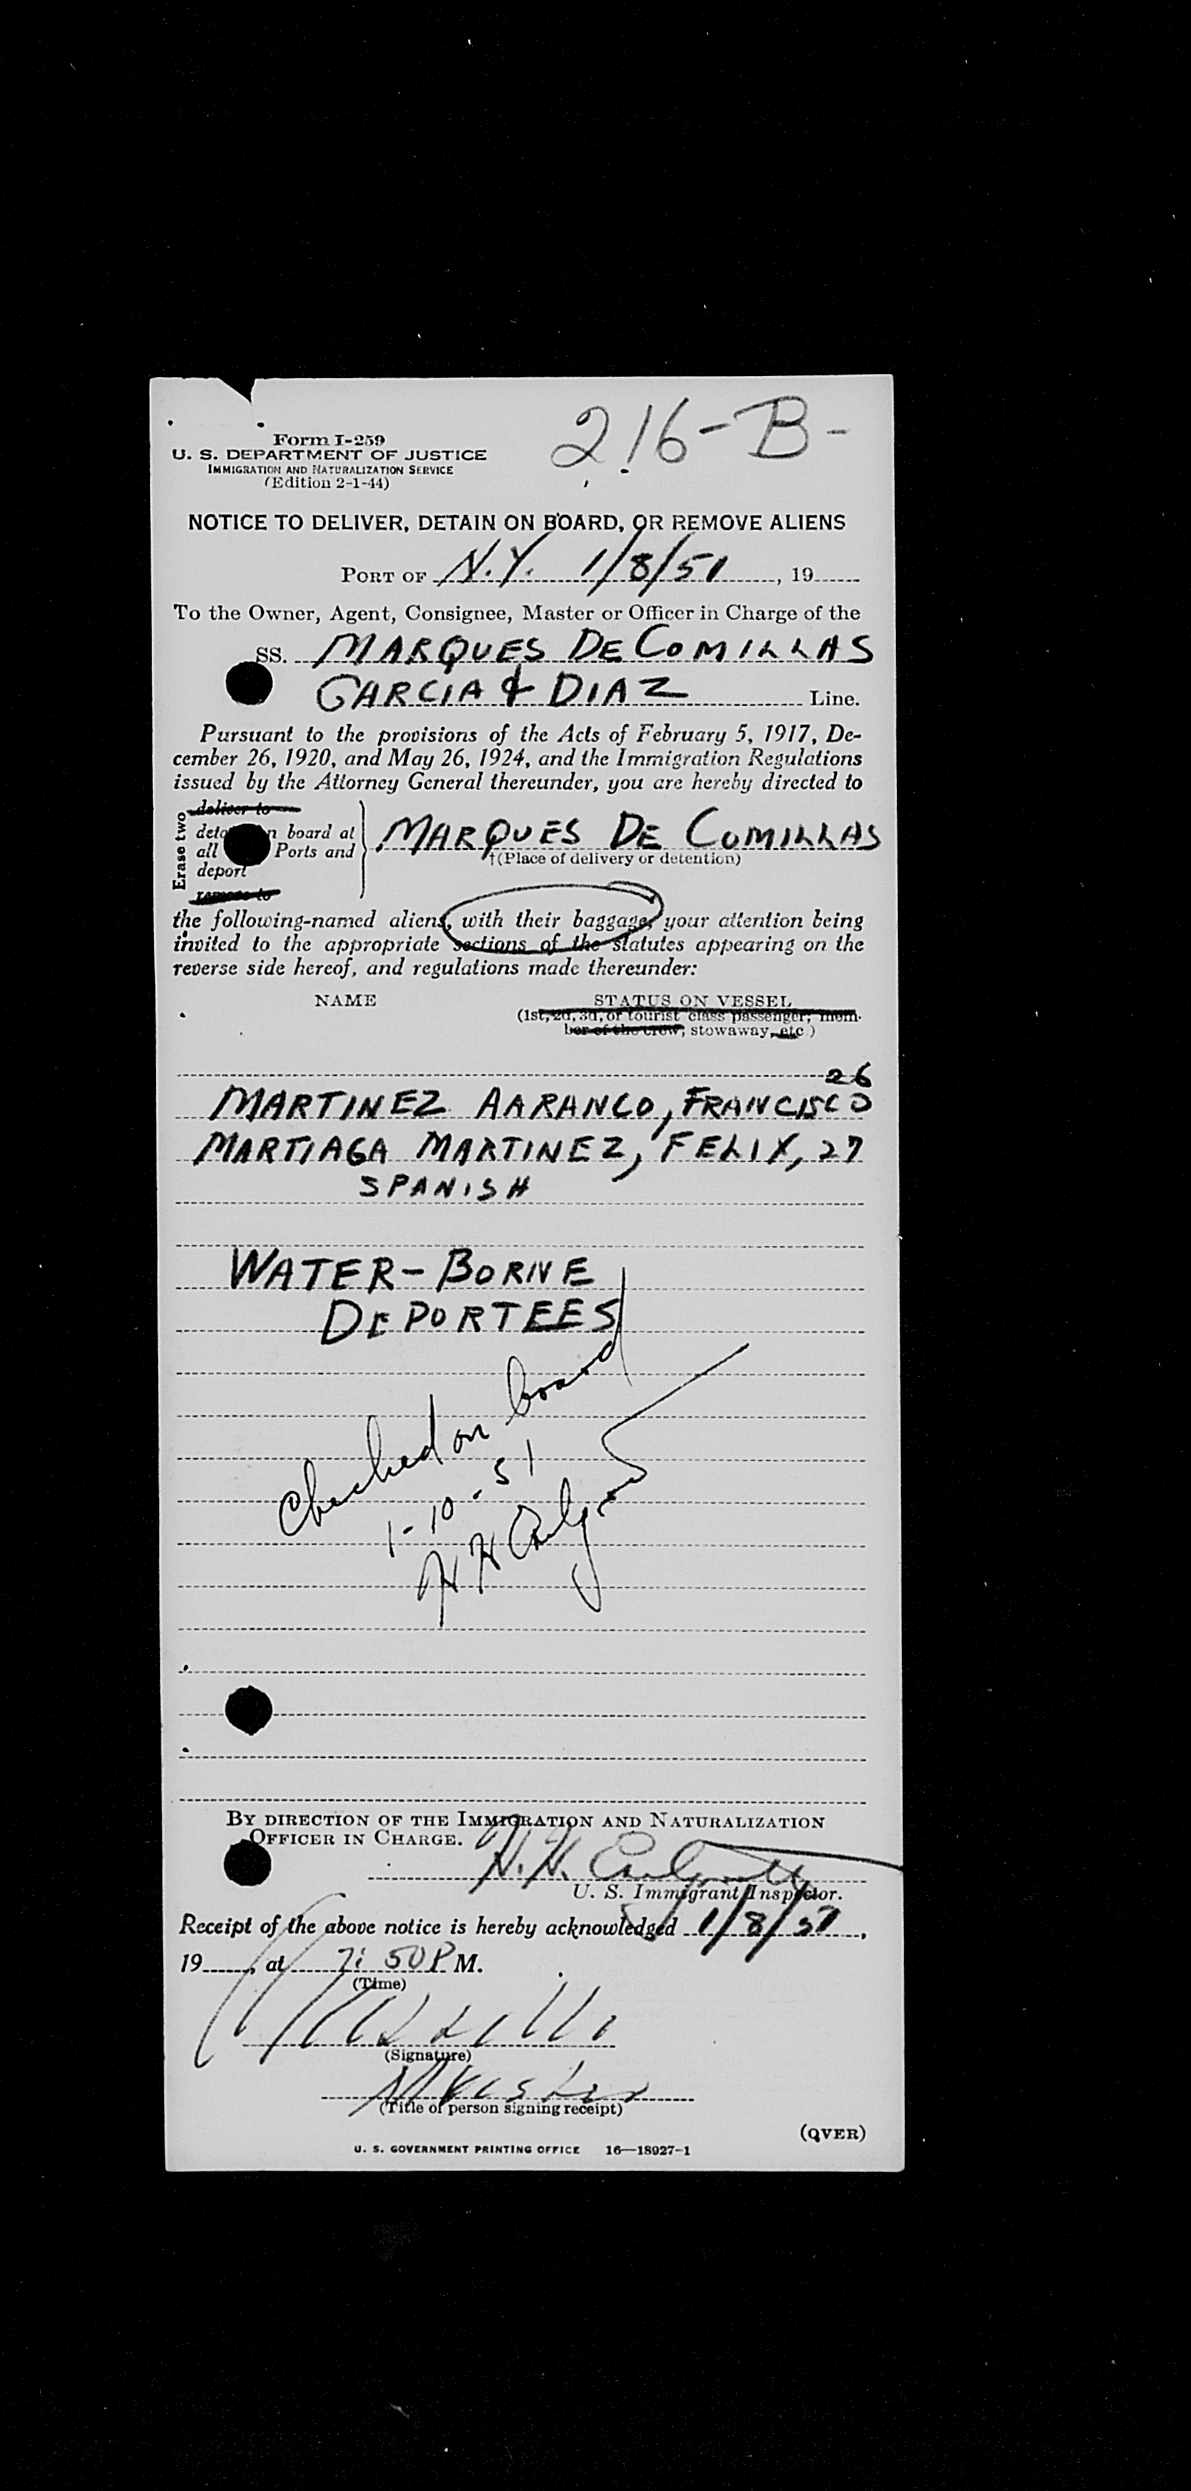 216-B-
Form I-259
U. S. DEPARTMENT OF JUSTICE
IMMIGRATION AND NATURALIZATION SERVICE
(Edition 2-1-44)
NOTICE TO DELIVER, DETAIN ON BOARD, OR REMOVE ALIENS
PORT OF N.Y. 1/8/51, 19
To the Owner, Agent, Consignee, Master or Officer in Charge of the
SS. MARQUES DE COMILLAS
GARCIA & DIAZ Line.
Pursuant to the provisions of the Acts of February 5, 1917, De-
cember 26, 1920, and May 26, 1924, and the Immigration Regulations
issued by the Attorney General thereunder, you are hereby directed to
Erase two
deliver to
board at
all Ports and
deport
remove to
MARQUES DE COMILLAS
†(Place of delivery or detention)
the following-named aliens, with their baggage, your attention being
invited to the appropriate sections of the statutes appearing on the
reverse side hereof, and regulations made thereunder:
NAME STATUS ON VESSEL
(1st, 2d, 3d, or tourist class passenger, mem-
ber of the crew, stowaway, etc.)
26
MARTINEZ AARANCO, FRANCISCO
MARTIAGA MARTINEZ, FELIX, 27
SPANISH
WATER-BORNE
DEPORTEES
Checked on board
1-10-51
H H
BY DIRECTION OF THE IMMIGRATION AND NATURALIZATION
OFFICER IN CHARGE.
H. H.
U. S. Immigrant Inspector.
Receipt of the above notice is hereby acknowledged 1/8/51,
19, at 7:50 P M.
(Time)
(Signature)
(Title of person signing receipt)
(OVER)
U. S. GOVERNMENT PRINTING OFFICE 16—18927-1